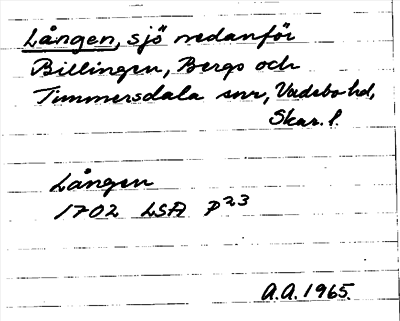 Lången, sjö nedanför
Billingen, Bergs och
Timmersdala snr, Vadsbo hd,
Skar. l.
Lången
1702 LSA P23
A.A. 1965.